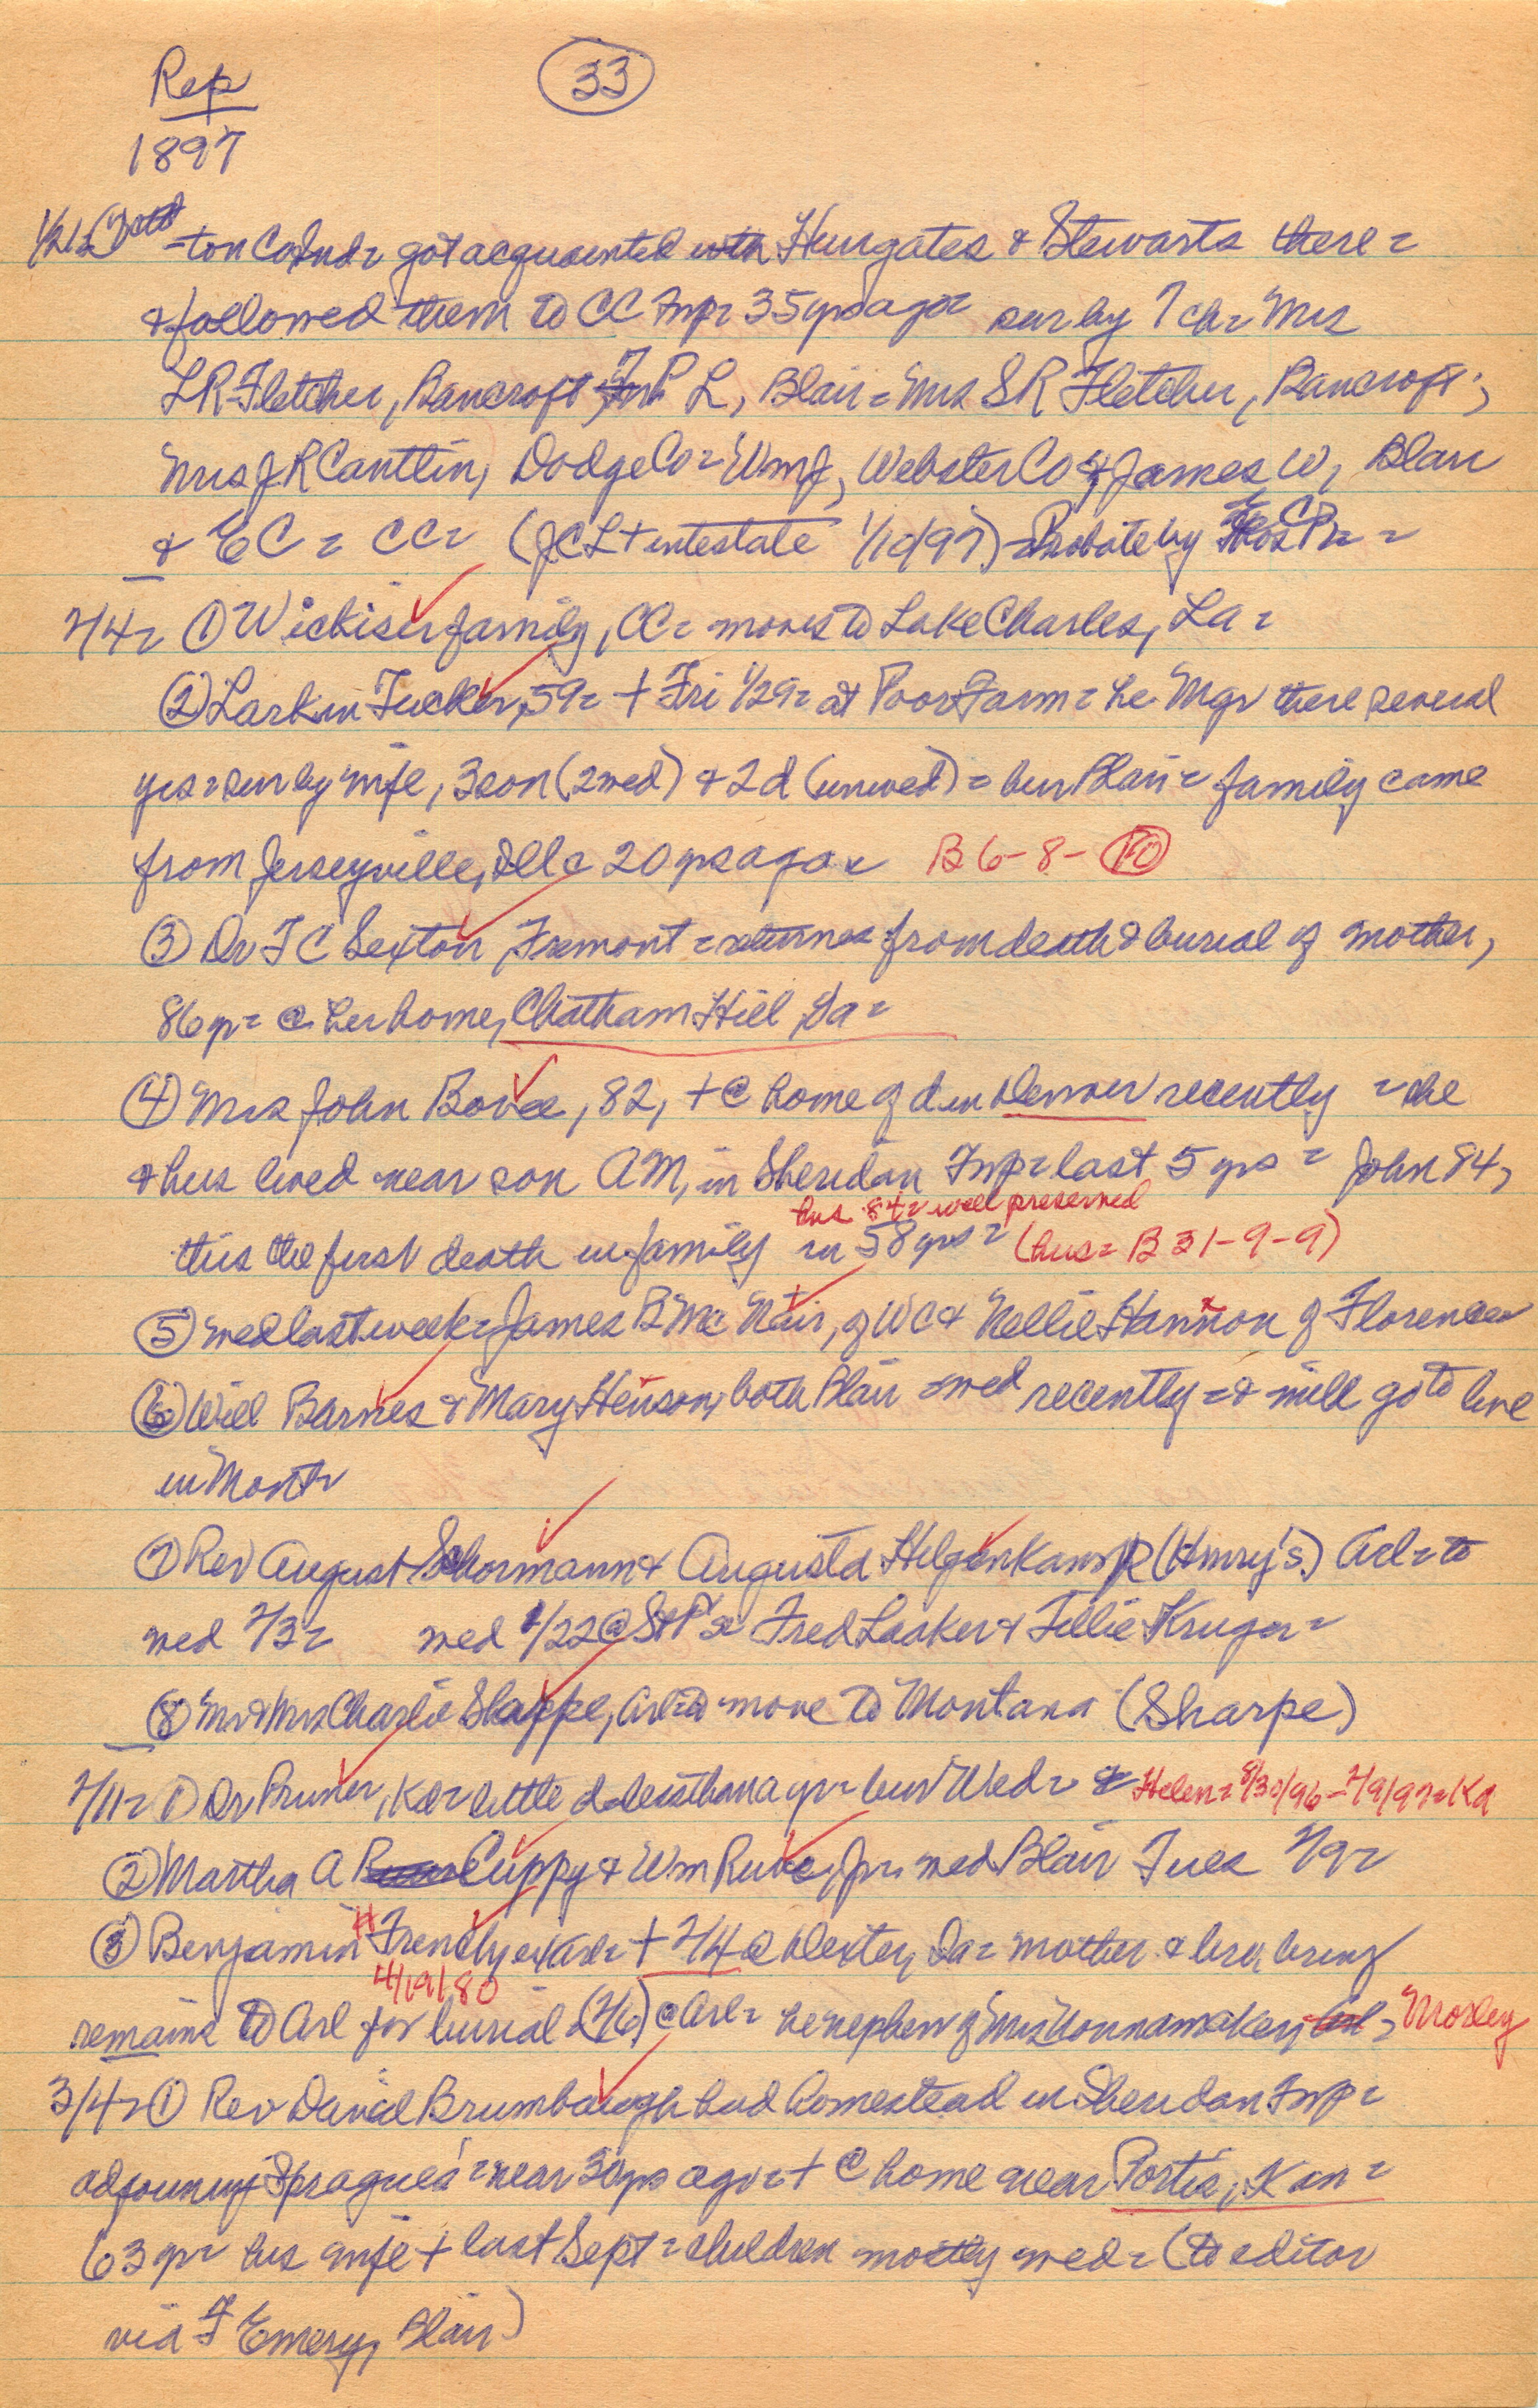 Rep
33
1897
1/21=
-ton Co Ind= got acquainted with Hungates & Stewarts there=
& followed them to CC Twp= 35 yrs ago= sur by 7 ch= Mrs
L R Fletcher, Bancroft; P L, Blair= Mrs S R Fletcher, Bancroft;
Mrs J R Cantlin, Dodge Co= Wm J, Webster Co & James W, Blair
& E C= CC= (J C L + intestate 1/10/97)= Probate by
2/4= ① Wickiser family, CC= moves to Lake Charles, La=
② Larkin Tucker, 59= + Fri 1/29= at Poor Farm= he Mgr there several
yrs= sur by wife, 3 son (2 wed) & 2 d (unwed)= bur Blair= family came
from Jerseyville, Ill c 20 yrs ago= B 6-8-FO
③ Dr F C Sexton, Fremont= returnes from death & burial of mother,
86 yr= @ her home, Chatham Hill, Va=
④ Mrs John Bovee, 82, + @ home of d in Denver recently= she
& hus lived near son A M, in Sheridan Twp= last 5 yrs= John 84,
hus 84= well preserved
this the first death in family in 58 yrs= (hus= B 31-9-9)
⑤ wed last week= James B McNair, of WC & Nellie Hannon of Florence=
⑥ Will Barnes & Mary Henson, both Blair= wed recently= & will go to live
in Mont=
⑦ Rev August Schormann & Augusta Hilgenkamp (Henry's) Arl= to
wed 2/3= wed 1/22 @ St P's= Fred Lasker & Tillie Kruger=
⑧ Mr & Mrs Charlie Shappe, Arl= to move to Montana (Sharpe)
2/11= ① Dr Pruner, Ka= little d less than a yr= bur Wed= Helen= 8/30/96-2/9/97= Ka
② Martha A Cuppy & Wm Ruwe, Jr= wed Blair Tues 2/9=
③ Benjamin # French, ex Arl= + 2/4 @ Dexter, Ia= mother & bro, bring
4/19/80
remains to Arl for burial (2/6) @ Arl= he nephew of Mrs Nonnamaker, Arl= Mosley
3/4= ① Rev David Brumbaugh had homestead in Sheridan Twp=
adjouning Sprague's= near 30 yrs ago= + @ home near Portis, Kan=
63 yr= his wife + last Sept= children mostly wed= (to editor
via F Emery, Blair)